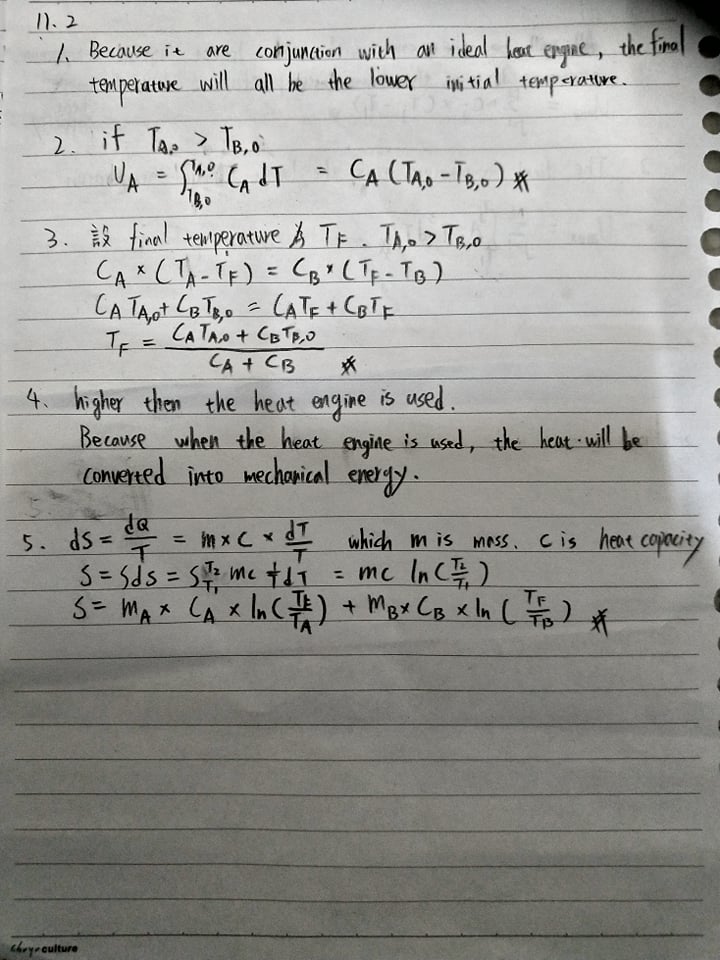 11.2
1. Because it are conjunction with an ideal heat engine, the final
temperature will all be the lower initial temperature.
2. if T_A,0 > T_B,0
U_A = ∫_{T_B,0}^{T_A,0} C_A dT = C_A (T_A,0 - T_B,0) ※
3. 設 final temperature 為 T_F. T_A,0 > T_B,0
C_A × (T_A - T_F) = C_B × (T_F - T_B)
C_A T_A,0 + C_B T_B,0 = C_A T_F + C_B T_F
T_F = (C_A T_A,0 + C_B T_B,0) / (C_A + C_B) ※
4. higher then the heat engine is used.
Because when the heat engine is used, the heat will be
converted into mechanical energy.
5.
5. ds = dQ/T = m × c × dT/T which m is mass. c is heat capacity
S = ∫ds = ∫_{T_1}^{T_2} mc 1/T dT = mc ln(T_2/T_1)
S = m_A × C_A × ln(T_F/T_A) + m_B × C_B × ln(T_F/T_B) ※
culture